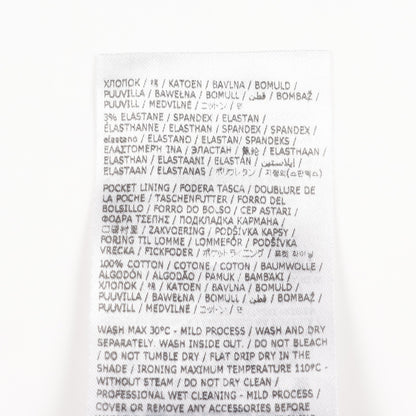 ХЛОПОК / 棉 / KATOEN / BAVLNA / BOMULD /
PUUVILLA / BAWEŁNA / BOMULL / قطن / BOMBAŽ /
PUUVILL / MEDVILNĖ / コットン / 면
3% ELASTANE / SPANDEX / ELASTAN /
ÉLASTHANNE / ELASTHAN / SPANDEX /
elastano / ELASTANO / ELASTAN / SPANDEKS /
ΕΛΑΣΤΟΜΕΡΗ ΙΝΑ / ЭЛАСТАН / 氨纶 / ELASTHAAN /
ELASTHAN / ELASTAANI / ELASTAN / إيلاستين /
ELASTAAN / ELASTANAS / ポリウレタン / 폴리우레탄(스판덱스)
POCKET LINING / FODERA TASCA / DOUBLURE DE
LA POCHE / TASCHENFUTTER / FORRO DEL
BOLSILLO / FORRO DO BOLSO / CEP ASTARI /
ΦΟΔΡΑ ΤΣΕΠΗΣ / ПОДКЛАДКА КАРМАНА /
口袋衬里 / ZAKVOERING / PODŠÍVKA KAPSY /
FORING TIL LOMME / LOMMEFÔR / PODŠÍVKA
VRECKA / FICKFODER / ポケットライニング / 포켓 라이닝
100% COTTON / COTONE / COTON / BAUMWOLLE /
ALGODÓN / ALGODÃO / PAMUK / ΒΑΜΒΑΚΙ /
ХЛОПОК / 棉 / KATOEN / BAVLNA / BOMULD /
PUUVILLA / BAWEŁNA / BOMULL / قطن / BOMBAŽ /
PUUVILL / MEDVILNĖ / コットン / 면
WASH MAX 30°C - MILD PROCESS / WASH AND DRY
SEPARATELY. WASH INSIDE OUT. / DO NOT BLEACH
/ DO NOT TUMBLE DRY / FLAT DRIP DRY IN THE
SHADE / IRONING MAXIMUM TEMPERATURE 110°-
WITHOUT STEAM / DO NOT DRY CLEAN /
PROFESSIONAL WET CLEANING - MILD PROCESS /
COVER OR REMOVE ANY ACCESSORIES BEFORE